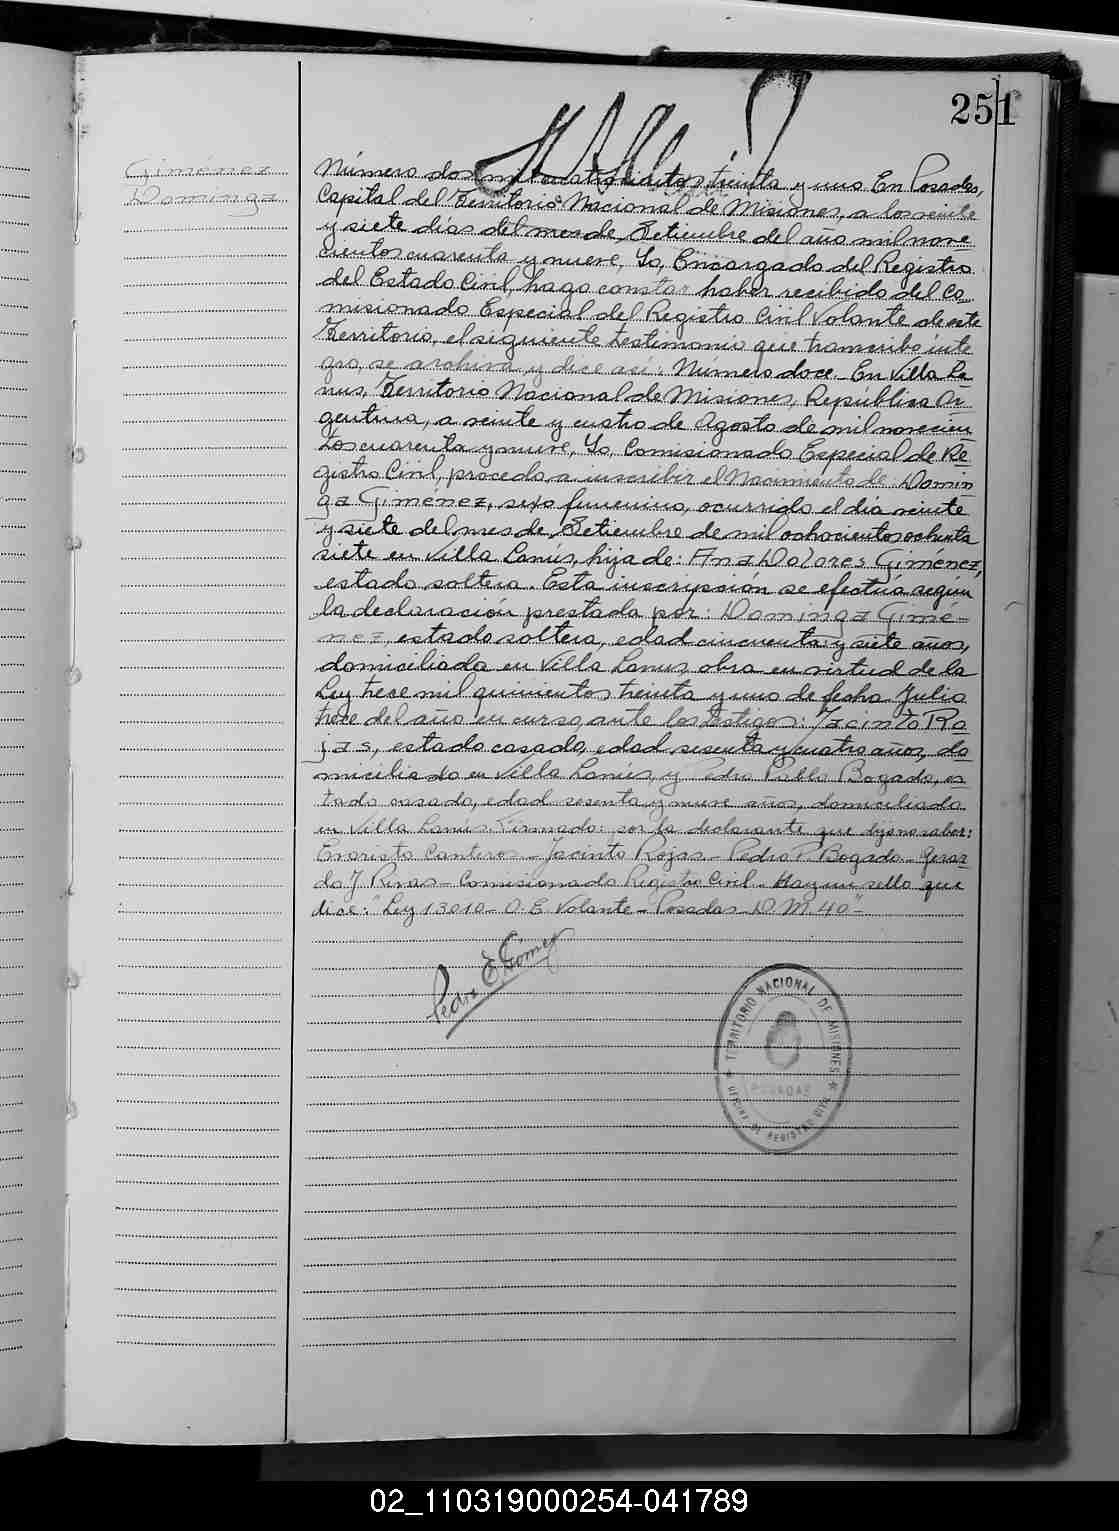 251
Giménez
Dominga
Número dos mil cuatrocientos treinta y uno En Posadas,
Capital del Territorio Nacional de Misiones, a los veinte
y siete días del mes de Setiembre del año mil nove
cientos cuarenta y nueve, Yo, Encargado del Registro
del Estado Civil, hago constar haber recibido del Co
misionado Especial del Registro Civil Volante de este
Territorio, el siguiente testimonio que transcribo inte
gro, se archiva y dice así: Número doce. En Villa La
nus, Territorio Nacional de Misiones, Republica Ar
gentina, a veinte y cuatro de Agosto de mil novecien
tos cuarenta y nueve, Yo, Comisionado Especial de Re
gistro Civil, procedo a inscribir el Nacimiento de: Domin
ga Giménez, sexo femenino, ocurrido el día veinte
y siete del mes de Setiembre de mil ochocientos ochenta
siete en Villa Lanús, hija de: Ana Dolores Giménez,
estado soltera. Esta inscripción se efectúa según
la declaración prestada por: Dominga Gimé-
nez, estado soltera, edad cincuenta y siete años,
domiciliada en Villa Lanus, obra en virtud de la
Ley trece mil quinientos treinta y uno de fecha Julio
trece del año en curso ante los testigos: Jacinto Ro
jas, estado casado, edad sesenta y cuatro años, do
miciliado en Villa Lanús, y Pedro Pablo Bogado, es
tado casado, edad sesenta y nueve años, domiciliado
en Villa Lanús. Firmado: por la declarante que dijo no saber:
Evaristo Canteros - Jacinto Rojas - Pedro P. Bogado - Gerar
do J. Rivas - Comisionado Registro Civil - Hay un sello que
dice: "Ley 13010 - O. E. Volante - Posadas - D M 40"-
Pedro E. Gómez
TERRITORIO NACIONAL DE MISIONES
POSADAS
OFICINA DE REGISTRO CIVIL
02_110319000254-041789